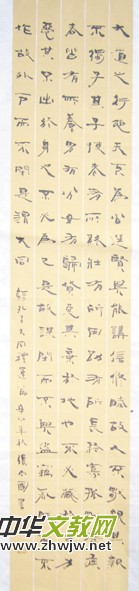 大道之行也天下為公選賢與能講信修睦故人不獨親其親
不獨子其子使老有所終壯有所用幼有所長矜寡孤獨廢疾
者皆有所養男有分女有歸貨惡其棄於地也不必藏於己力
惡其不出於身也不必為己是故謀閉而不興盜竊亂賊而不
作故外戶而不閉是謂大同
中华文教网
www.zhwjw.net